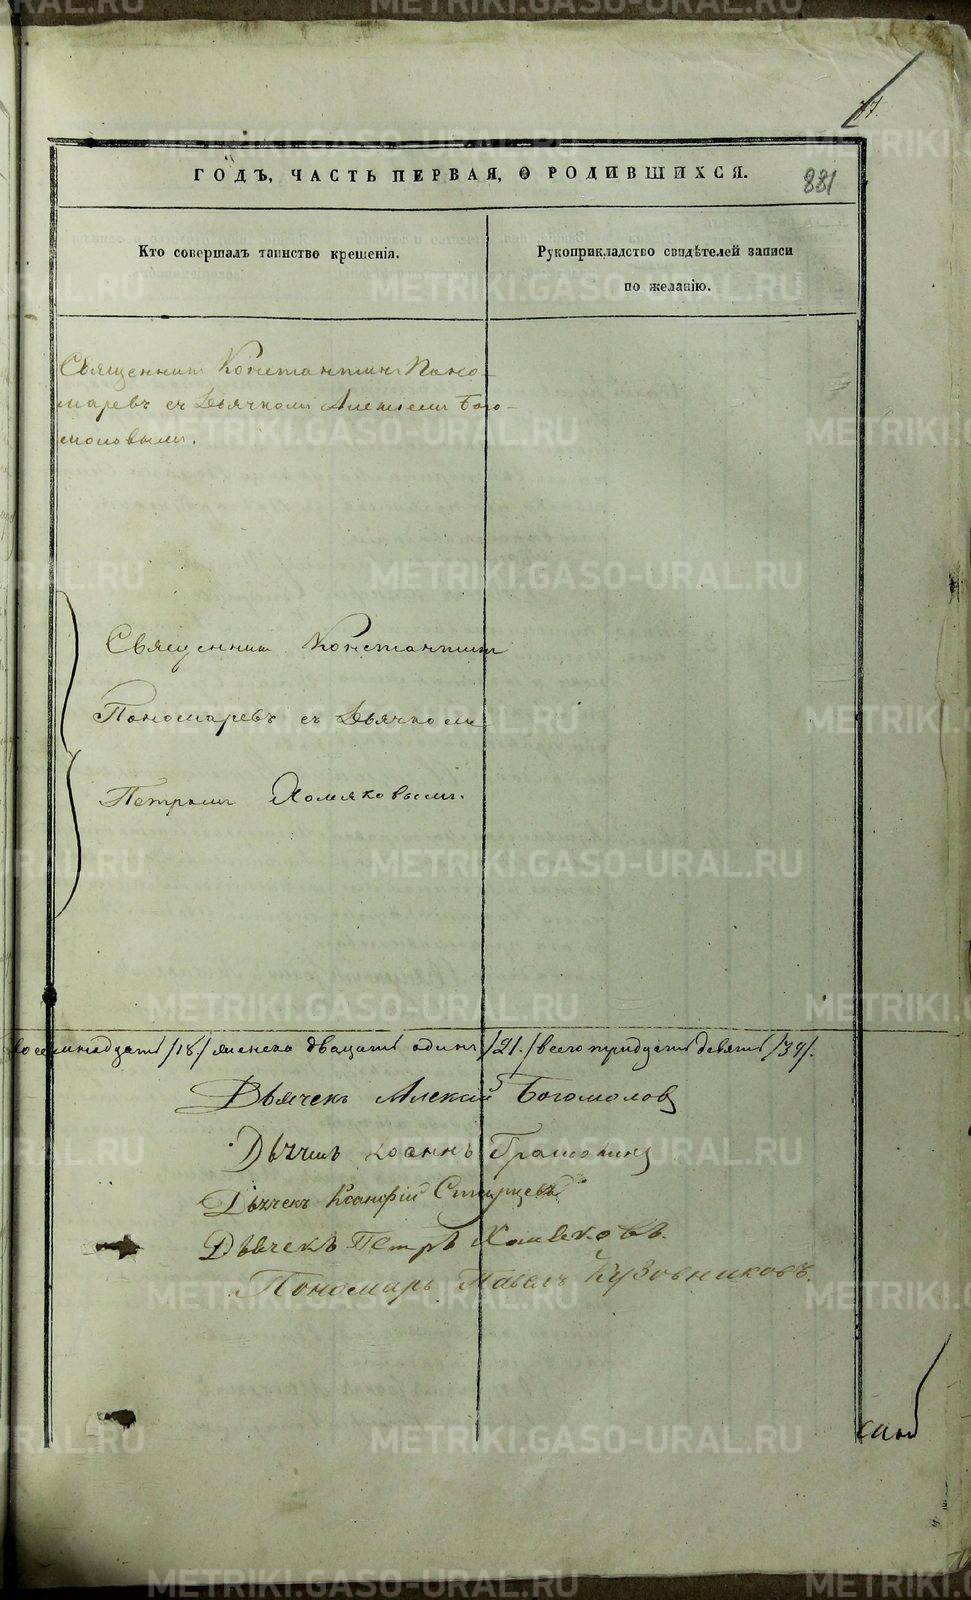 77.
ГОДЪ, ЧАСТЬ ПЕРВАЯ, О РОДИВШИХСЯ.
881
Кто совершалъ таинство крещенія.
Рукоприкладство свидѣтелей записи
по желанію.
Священникъ Константинъ Поно-
маревъ съ Дьячкомъ Алексѣемъ Бого-
моловымъ.
Священникъ Константинъ
Пономаревъ съ Дьячкомъ
Петромъ Хомяковымъ.
восемнадцать /18/ женска двадцать одинъ /21./ всего тридцать девять /39/.
Дьячекъ Алексій Богомоловъ
Дьячекъ Іоаннъ Грамотинъ
Дьячекъ Ксанфій Старцевъ
Дьячекъ Петръ Хомяковъ.
Пономарь Павелъ Кузовниковъ.
METRIKI.GASO-URAL.RU